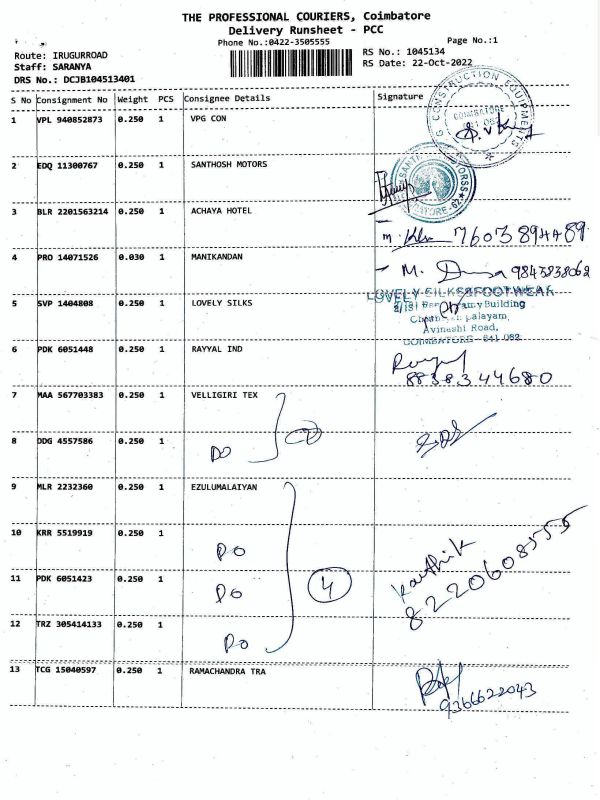 THE PROFESSIONAL COURIERS, Coimbatore
Delivery Runsheet - PCC
Phone No.:0422-3505555
Page No.:1
Route: IRUGURROAD
RS No.: 1045134
Staff: SARANYA
RS Date: 22-Oct-2022
DRS No.: DCJB104513401
S No Consignment No Weight PCS Consignee Details Signature
CONSTRUCTION EQUIPMENTS
COIMBATORE
1 VPL 940852873 0.250 1 VPG CON
2 EDQ 11300767 0.250 1 SANTHOSH MOTORS
3 BLR 2201563214 0.250 1 ACHAYA HOTEL
7603894489
4 PRO 14071526 0.030 1 MANIKANDAN
M. 9845838062
5 SVP 1404808 0.250 1 LOVELY SILKS
LOVELY SILKS&FOOTWEAR
Building
palayam,
Avinashi Road,
COIMBATORE - 641 062
6 PDK 6051448 0.250 1 RAYYAL IND
8838344680
7 MAA 567703383 0.250 1 VELLIGIRI TEX
8 DDG 4557586 0.250 1 DO
9 MLR 2232360 0.250 1 EZULUMALAIYAN
10 KRR 5519919 0.250 1 DO
11 PDK 6051423 0.250 1 DO
4
Karthik
8220608555
12 TRZ 305414133 0.250 1 DO
13 TCG 15040597 0.250 1 RAMACHANDRA TRA
9366622043